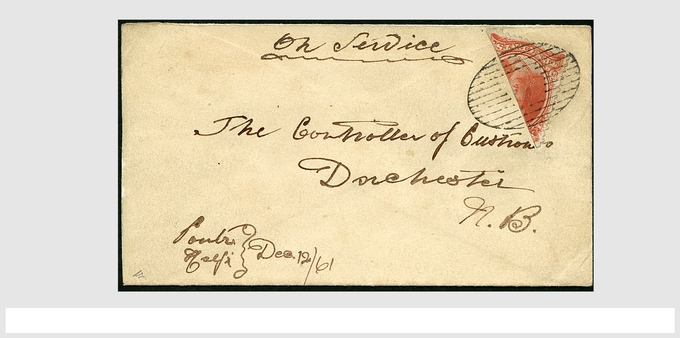 On Service
The Controller of Customs
Dorchester
N. B.
Dec. 12/61